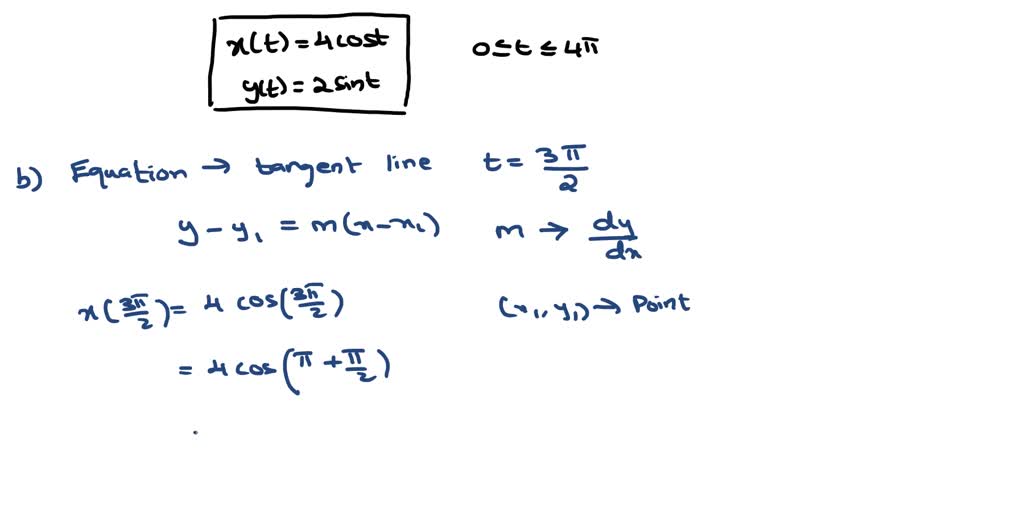 x(t) = 4 cost 0 ≤ t ≤ 4π
y(t) = 2 sint
b) Equation → tangent line t = 3π/2
y - y₁ = m(x - x₁) m → dy/dx
x(3π/2) = 4 cos(3π/2) (x₁, y₁) → Point
= 4 cos(π + π/2)